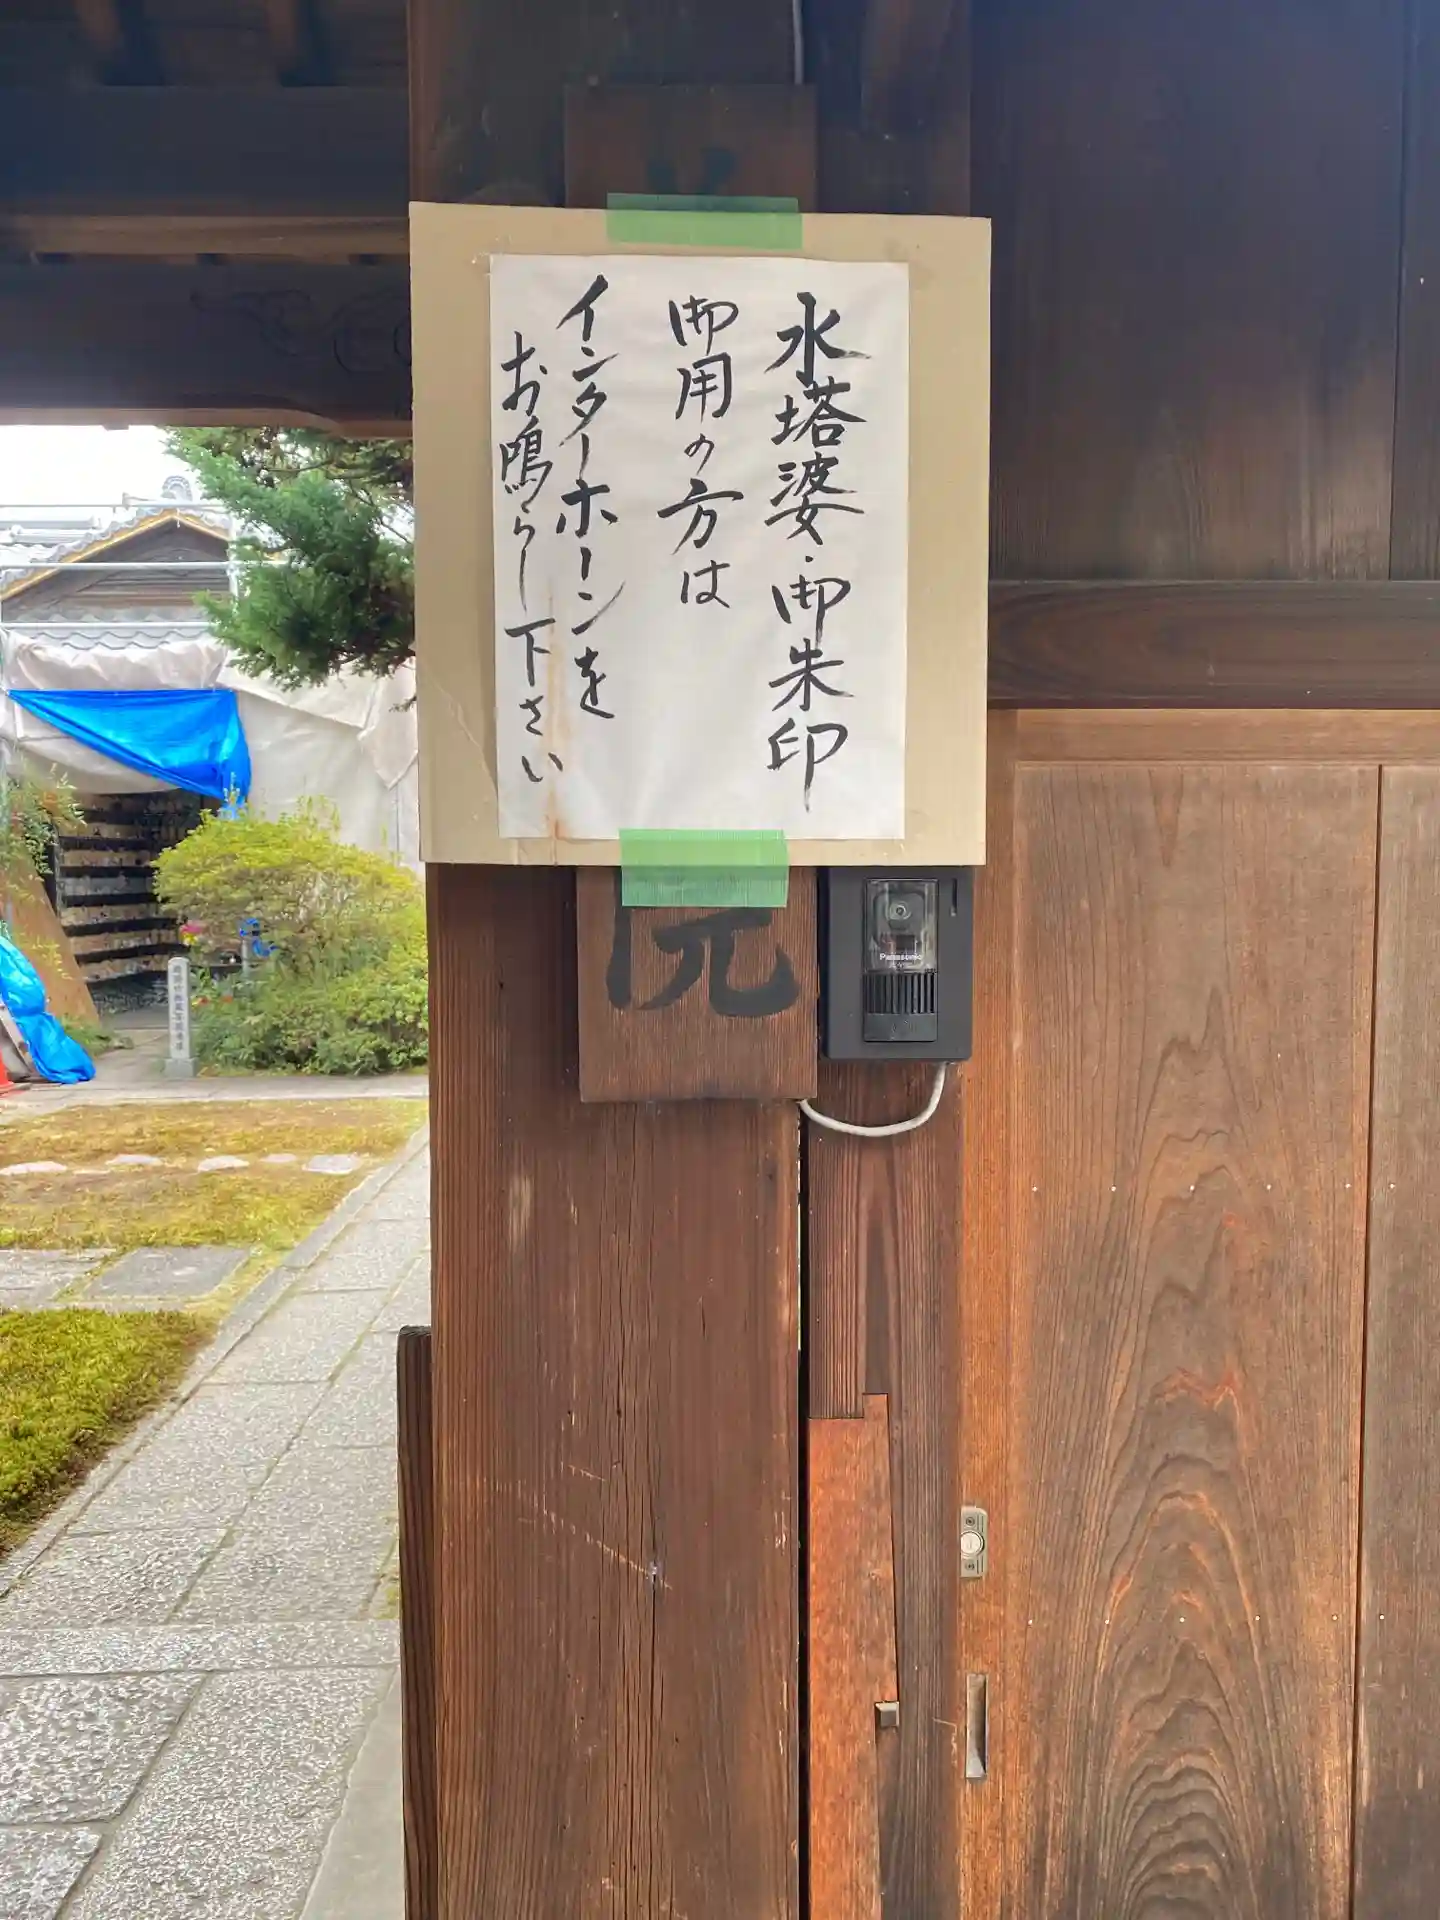 水塔婆・御朱印
御用の方は
インターホーンを
お鳴らし下さい
院
Panasonic